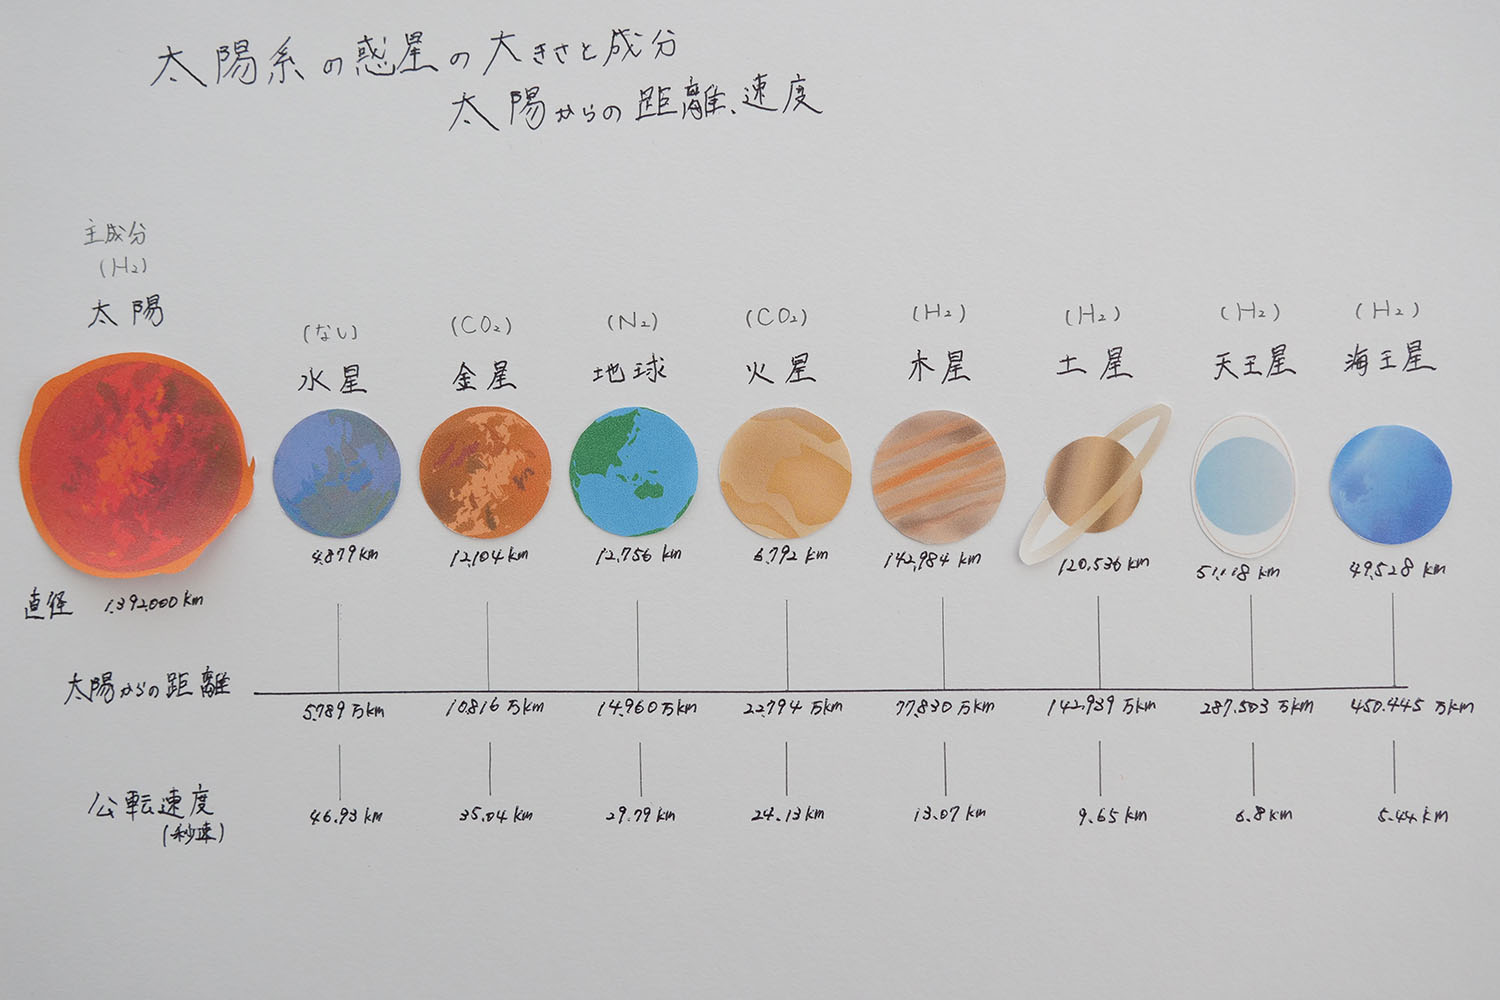 太陽系の惑星の大きさと成分
太陽からの距離、速度
主成分
(H₂)
太陽
(ない) (CO₂) (N₂) (CO₂) (H₂) (H₂) (H₂) (H₂)
水星 金星 地球 火星 木星 土星 天王星 海王星
4,879km 12,104km 12,756km 6,792km 142,984km 120,536km 51,118km 49,528km
直径 1,392,000km
太陽からの距離
5,789万km 10,816万km 14,960万km 22,794万km 77,830万km 142,939万km 287,503万km 450,445万km
公転速度
(秒速)
46.93km 35.04km 29.79km 24.13km 13.07km 9.65km 6.8km 5.44km